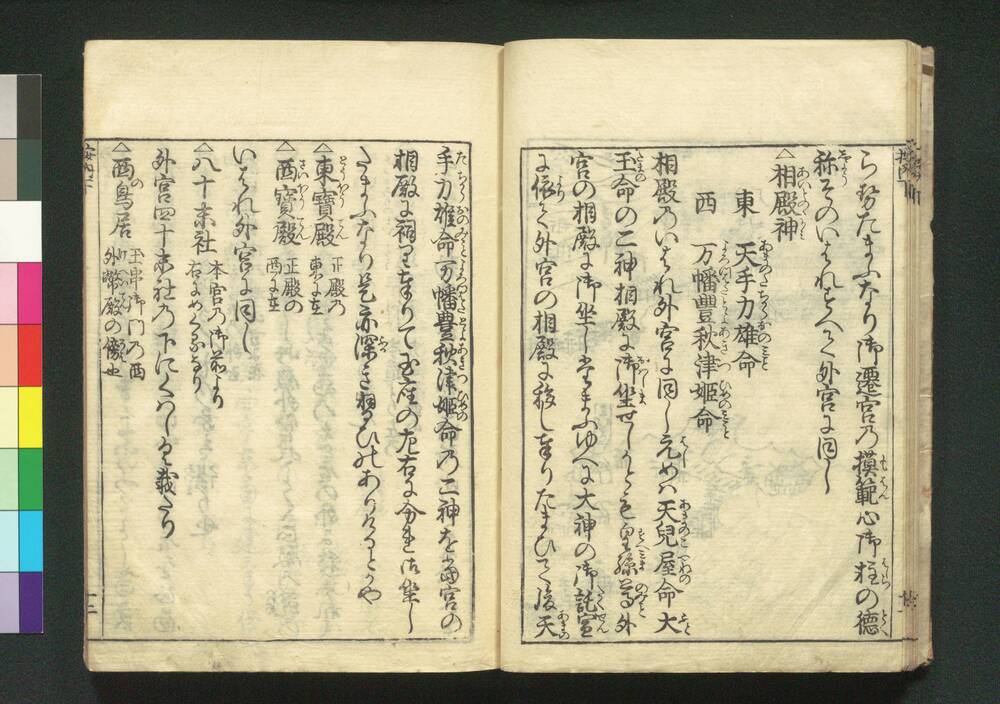 らせたまふなり御遷宮乃摸範心御柱の徳
称そのいはれすへて外宮に同し
△相殿神
東　天手力雄命
西　万幡豊秋津姫命
相殿乃いはれ外宮に同し元めハ天児屋命大
玉命の二神相殿に御坐せしかとも皇孫尊外
宮の相殿に御坐しますゆへに大神の御託宣
に依て外宮の相殿に移し奉りたまひて後天
手力雄命万幡豊秋津姫命乃二神を当宮の
相殿に祠り奉りて玉座の左右に分ち御坐し
たまふなり是亦深き故ひのありけるとかや
△東寳殿　正殿乃東に在
△西寳殿　正殿の西に在
いはれ外宮に同し
△八十末社　本宮乃御前より右にめくるなり
外宮四十末社乃下にくはしくこれを載たり
△西鳥居　玉串御門乃西外幣殿の傍也